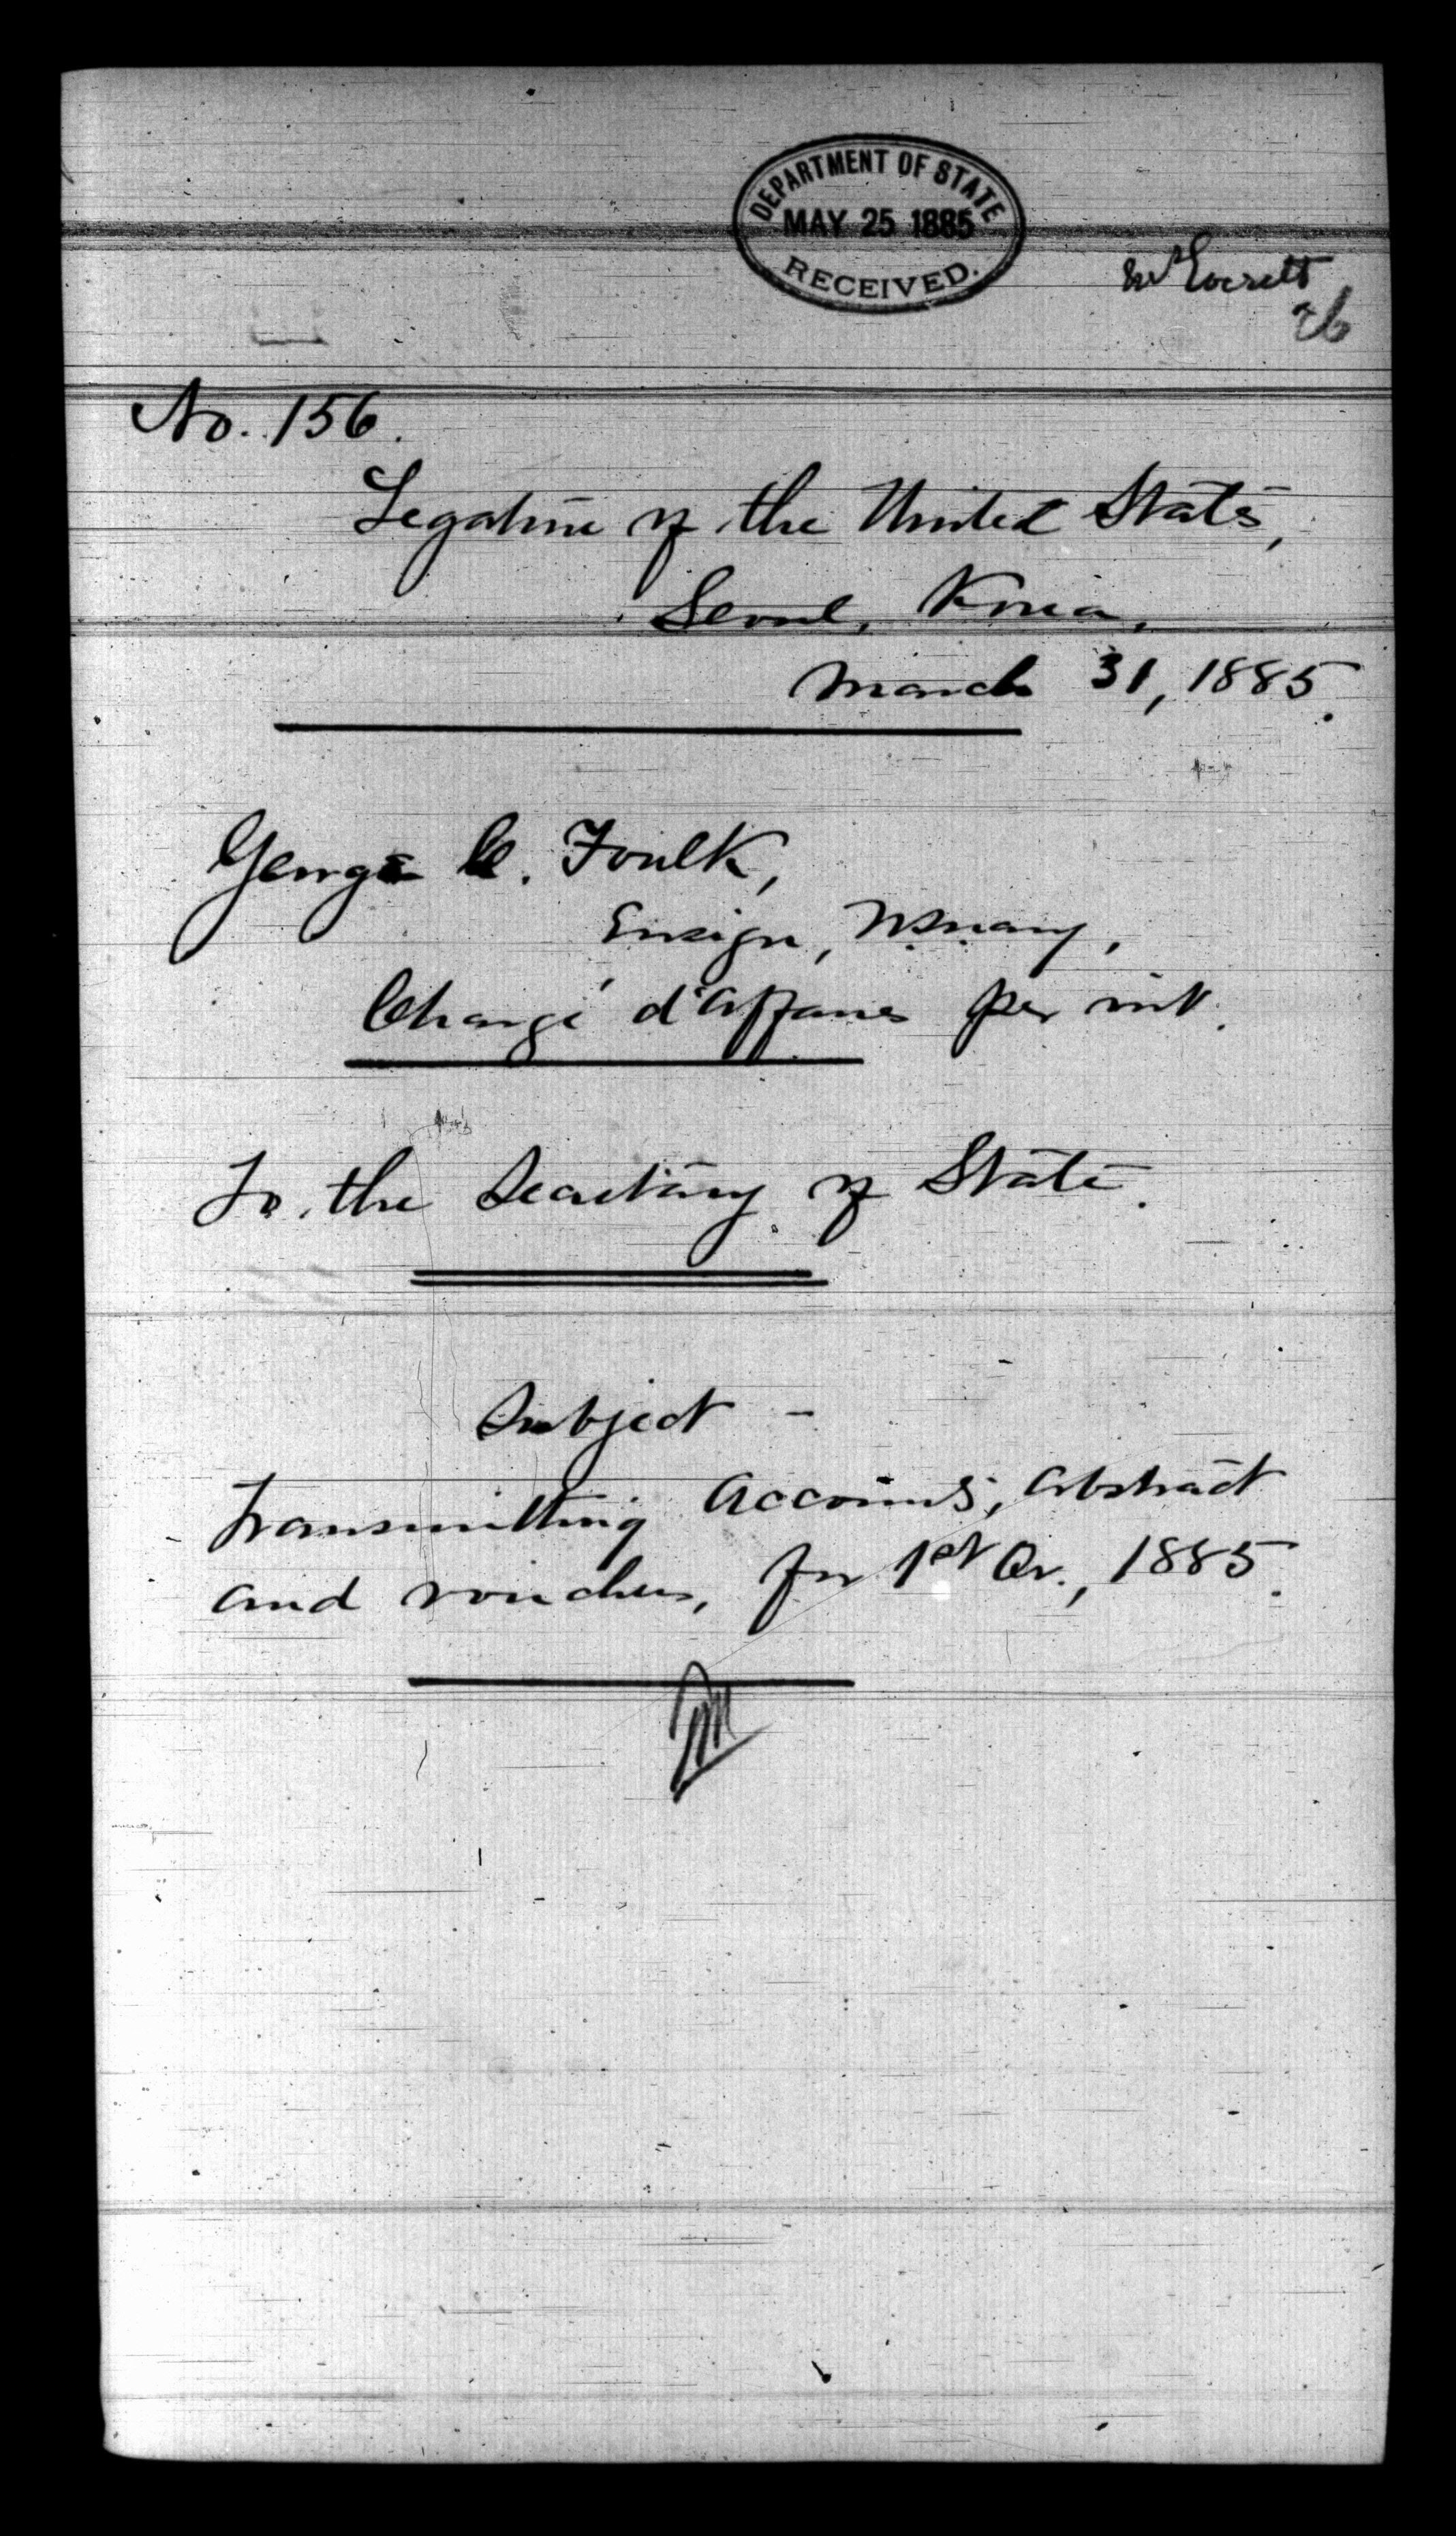 DEPARTMENT OF STATE
MAY 25 1885
RECEIVED.
Mr Everett
No. 156.
Legation of the United States,
Seoul, Korea,
March 31, 1885.
George C. Foulk,
Ensign, U.S. Navy,
Chargé d'Affaires per int.
To the Secretary of State.
Subject -
Transmitting Accounts, Abstract
and vouchers, for 1st Qr., 1885.